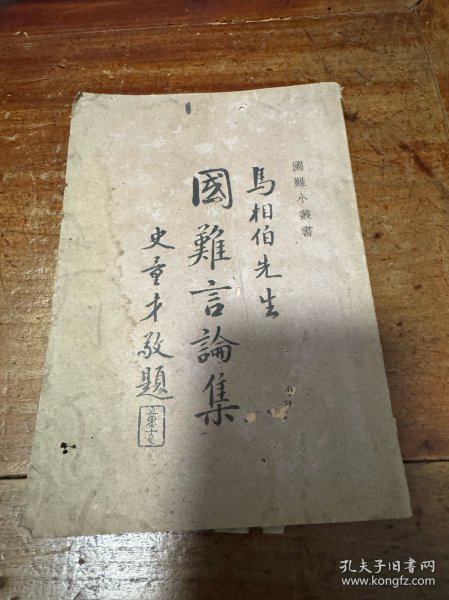 國難小叢書
馬相伯先生
國難言論集
史量才敬題
孔夫子旧书网
www.kongfz.com